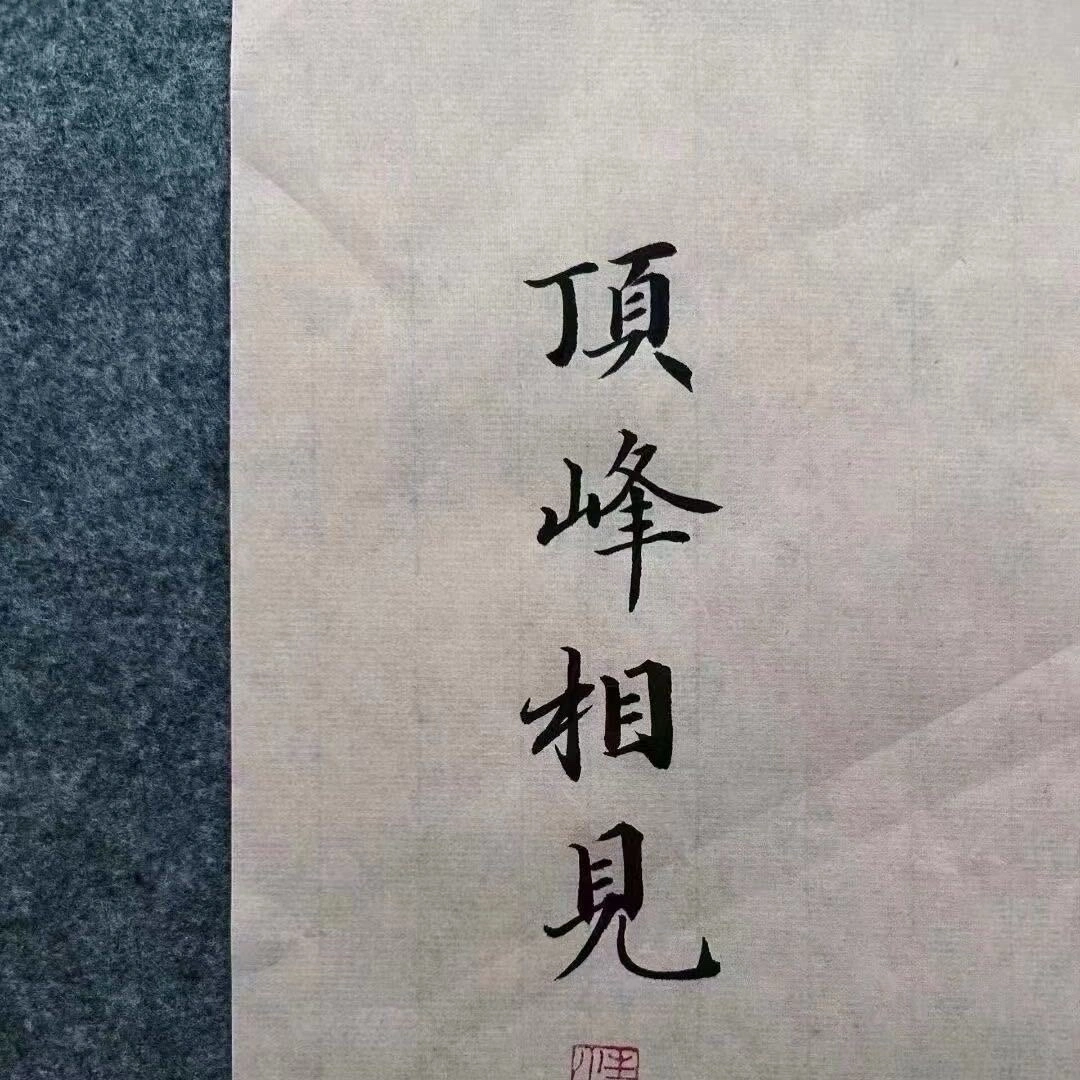 頂峰相見